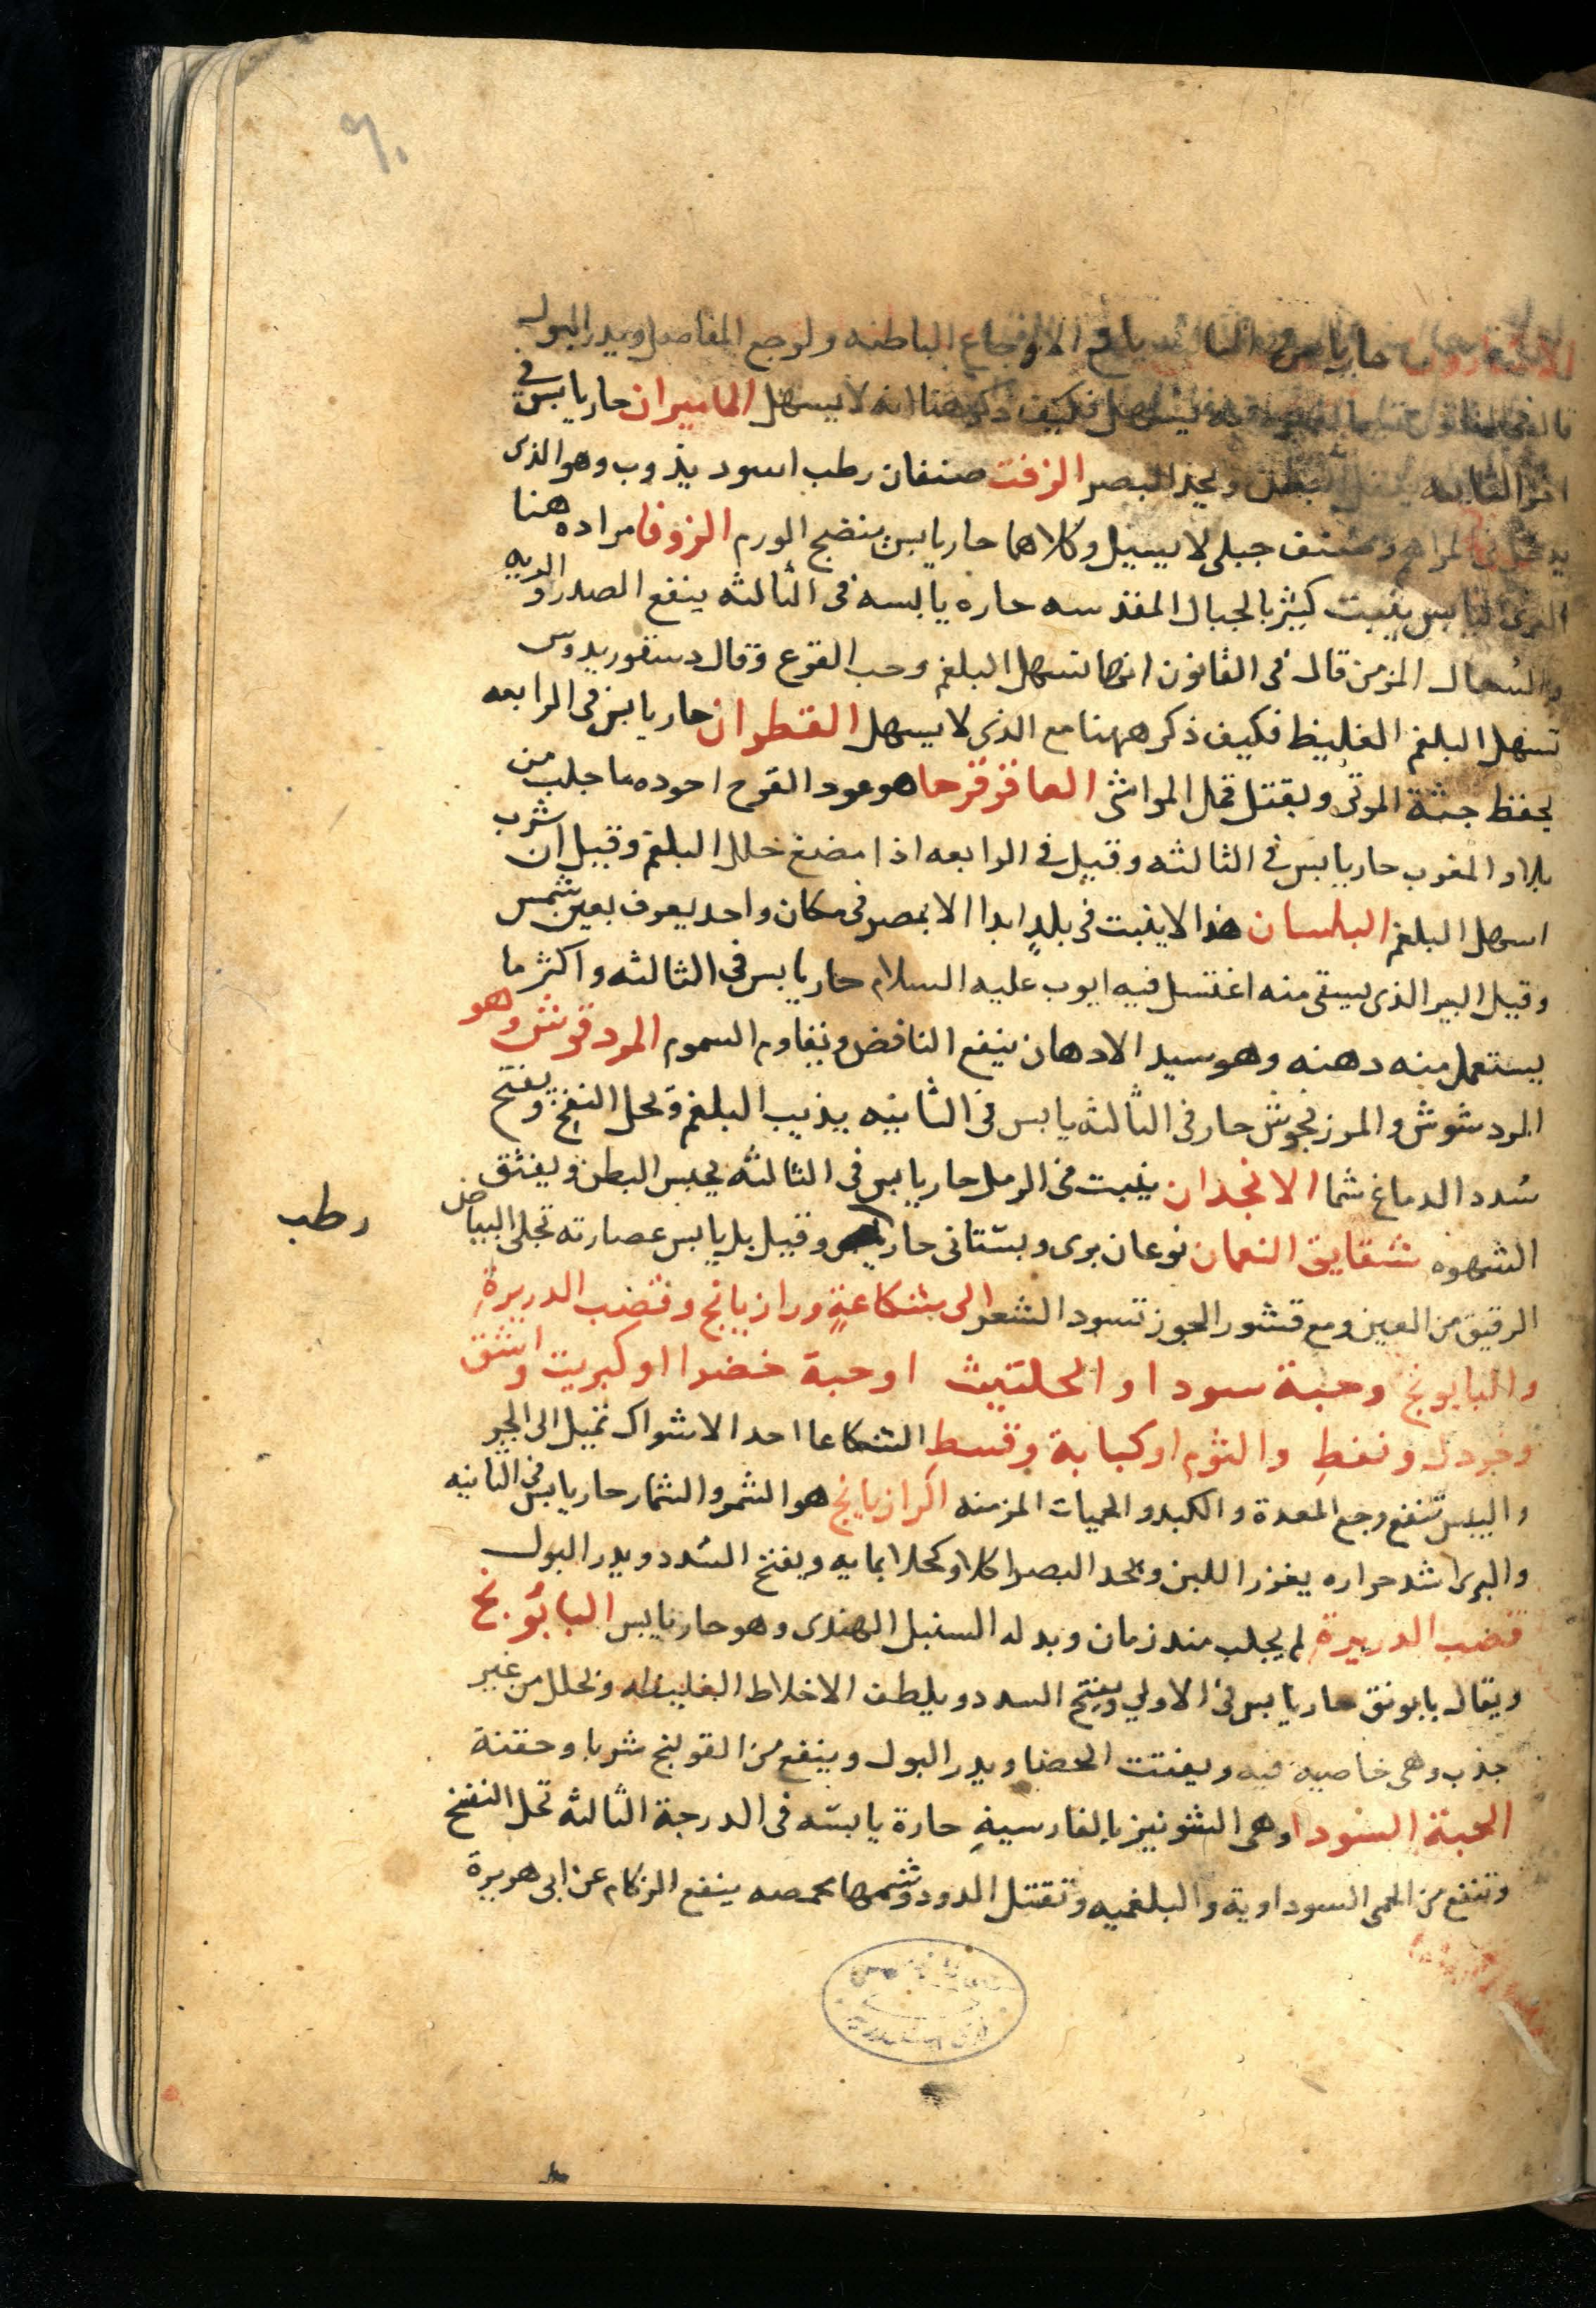 ٩٠
حار يابس في الثالثه نافع الاوجاع الباطنه ولوجع المفاصل ويدر البول
فكيف ذكر هنا انه لا يسهل الماميران حار يابس في
اخر الثالثه البطن ويحد البصر الزفت صنفان رطب اسود يذوب وهو الذى
يدخل في المراهم وصنف جبلى لا يسيل وكلاهما حار يابس منضج الورم الزوفا مراده هنا
اليابس ينبت كثير بالجبال المقدسه حاره يابسه فى الثالثه ينفع الصدر والريه
والسُعال المزمن قال فى القانون انها تسهل البلغم وحب القرع وقال دسقوريدوس
تسهل البلغم الغليظ فكيف ذكر ههنا مع الذى لا يسهل القطران حار يابس فى الرابعه
يحفظ جثة الموتى ويقتل قمل المواشى العاقرقرحا هو عود القرح اجوده ما جلب من
بلاد المغرب حار يابس في الثالثه وقيل في الرابعه اذا مضغ حلل البلغم وقيل ان شرب
اسهل البلغم البلسان هذا لا ينبت فى بلدٍ ابدا الا بمصر فى مكان واحد يعرف بعين شمس
وقيل البير الذى يسقى منه اغتسل فيه ايوب عليه السلام حار يابس فى الثالثه واكثر ما
يستعمل منه دهنه وهو سيد الادهان ينفع النافض ويقاوم السموم المردقوش وهو
المردشوش والمرزنجوش حار فى الثالثه يابس فى الثانيه يذيب البلغم ويحل النفخ ويفتح
سُدد الدماغ شما الانجدان ينبت فى الرمل حار يابس فى الثالثه يحبس البطن ويفتق
الشهوه شقايق النعمان نوعان برى وبستانى حار وقيل بل يابس عصارته تجلى البياض
رطب
الرقيق من العين ومع قشور الجوز تسود الشعر الى شكاعةٍ ورازيانج وقضب الدريرةِ
والبابونج وحبة سودا والحلتيث اوحبة خضرا او كبريت واشق
وخردل ونفطٍ والثوم او كبابة وقسطِ الشكاعا احد الاشواك تميل الى الحر
واليبس تنفع وجع المعدة والكبد والحميات المزمنه الرازيانج هو الشمر والشمار حار يابس فى الثانيه
والبرى اشد حراره يغزر اللبن ويحد البصر اكلا وكحلا بمايه ويفتح السُدد ويدر البول
قضب الدريرةِ لم يجلب منذ زمان وبدله السنبل الهندى وهو حار يابس البابُونج
ويقال بابونق حار يابس فى الاولي ويفتح السدد ويلطف الاخلاط الغليظه ويحلل من غير
جذب وهى خاصيه فيه ويفتت الحصا ويدر البول وينفع من القولنج شربا وحقنة
الحبة السودا وهى الشونيز بالفارسيةِ حارة يابسه فى الدرجة الثالثه تحل النفخ
وتنفع من الحمى السوداوية والبلغميه وتقتل الدود وشمها محمصه ينفع الزكام عن ابى هريرة